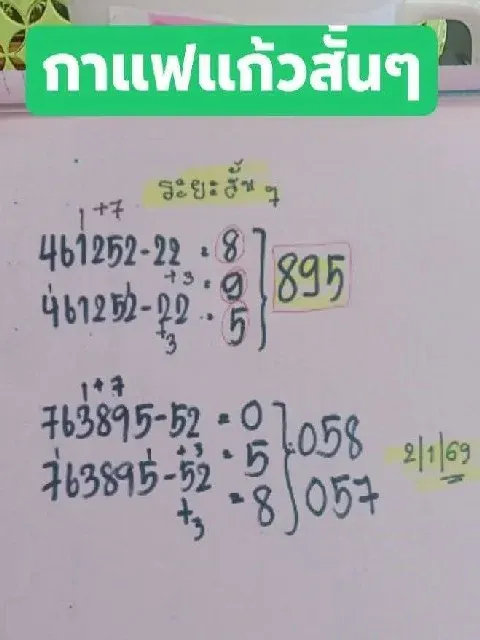 กาแฟแก้วสั้นๆ
ระยะสั้น ๆ
1 +7
461252-22 = 8
+3 = 9
461252-22 = 5
+3
895
1+7
763895-52 = 0
+3 = 5
763895-52
+3 = 8
058
057
2/1/69